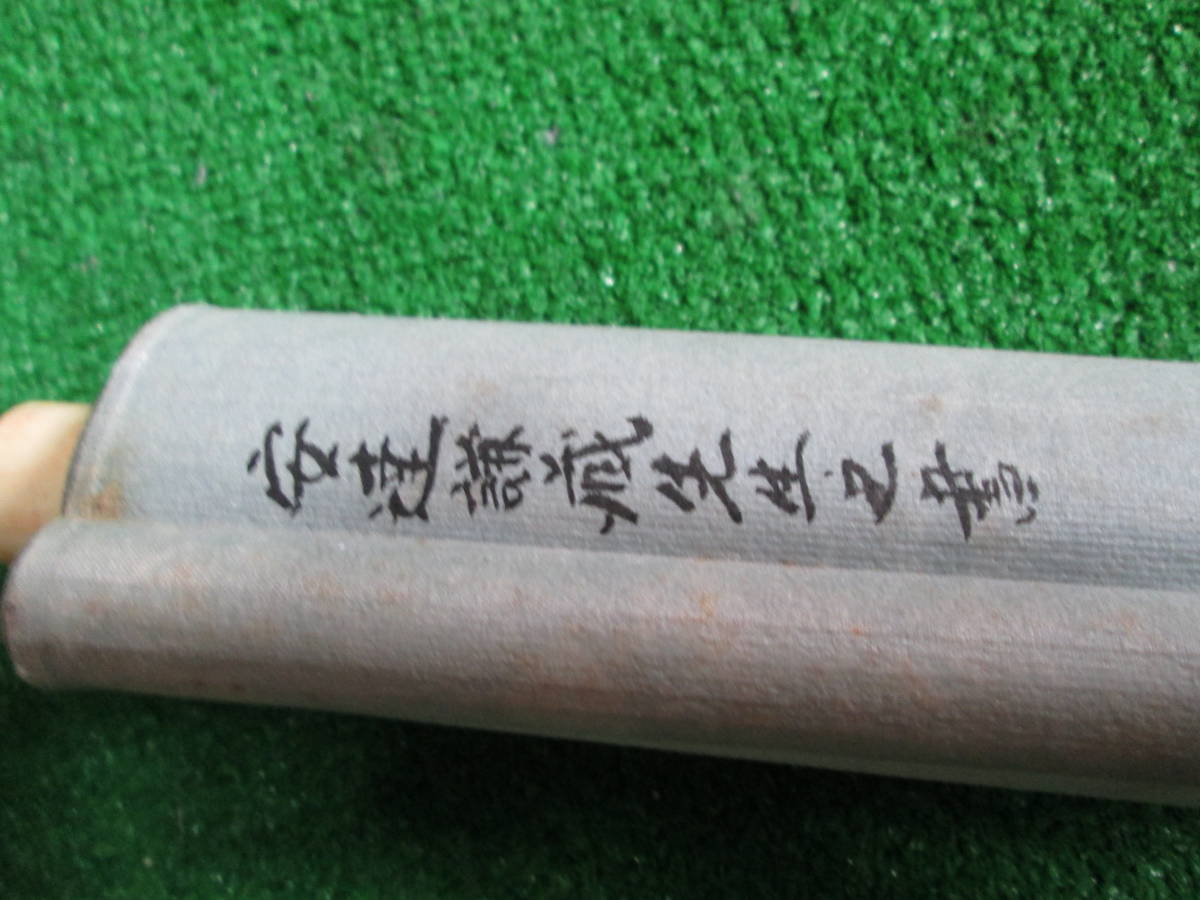 安達謙蔵先生之書